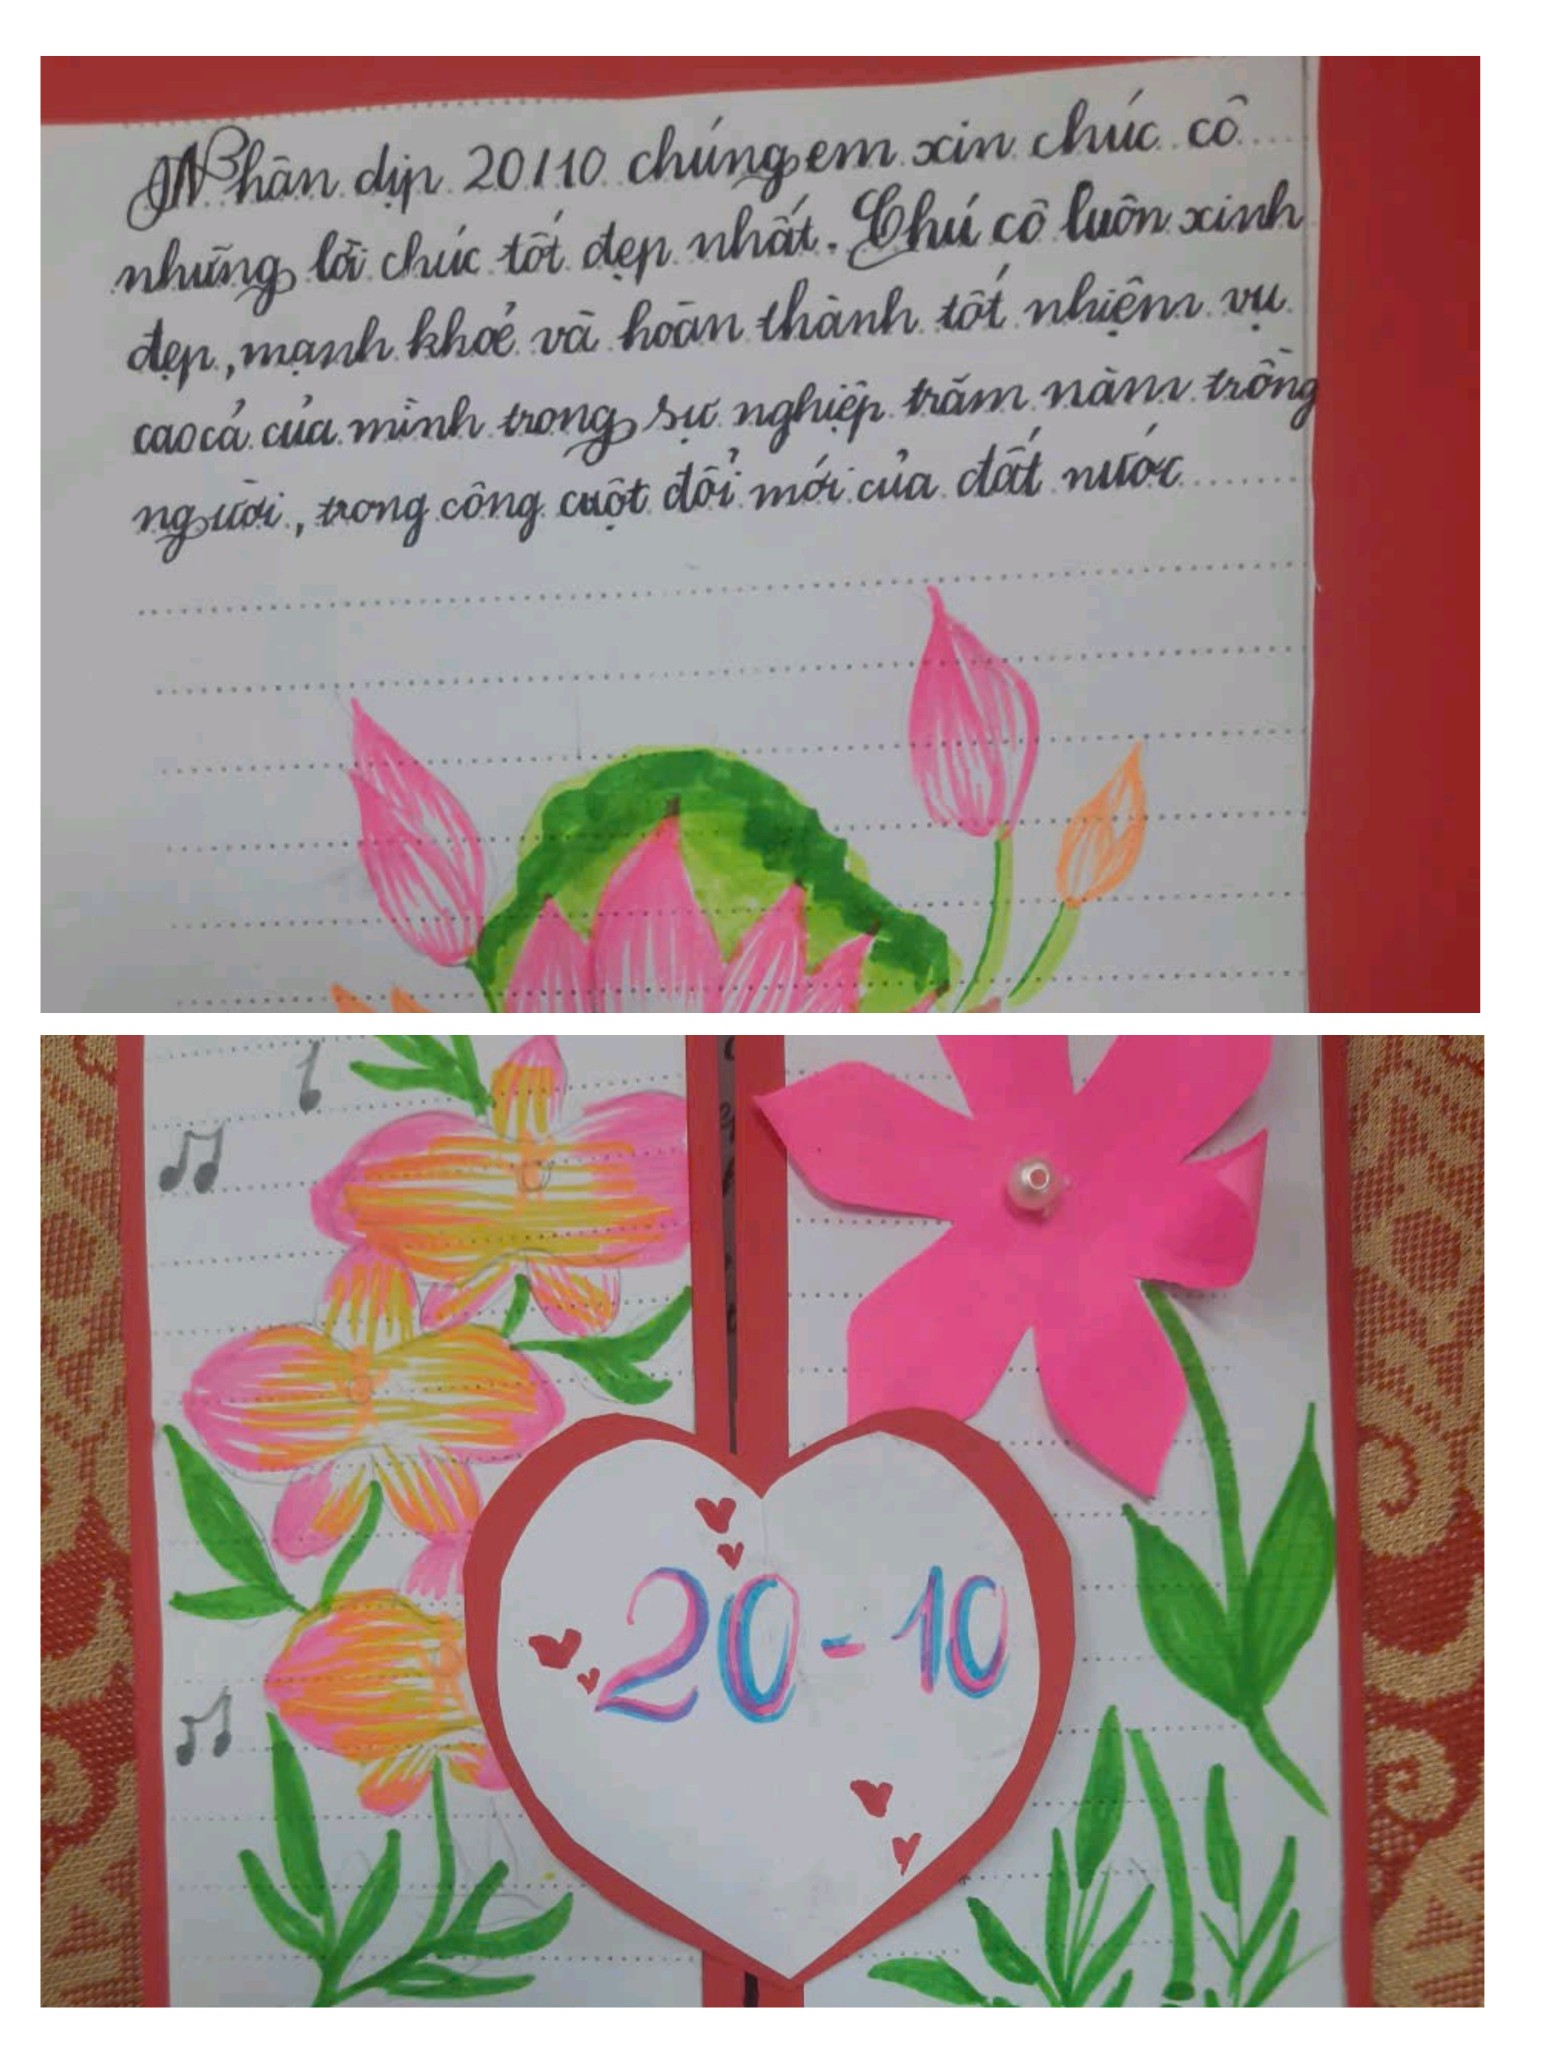 Nhân dịp 20/10 chúng em xin chúc cô
những lời chúc tốt đẹp nhất. Chú cô luôn xinh
đẹp, mạnh khoẻ và hoàn thành tốt nhiệm vụ
cao cả của mình trong sự nghiệp trăm năm trồng
người, trong công cuột đổi mới của đất nước
20-10